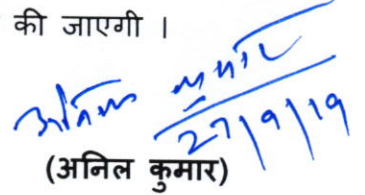 की जाएगी ।
अनिल कुमार
27/9/19
(अनिल कुमार)